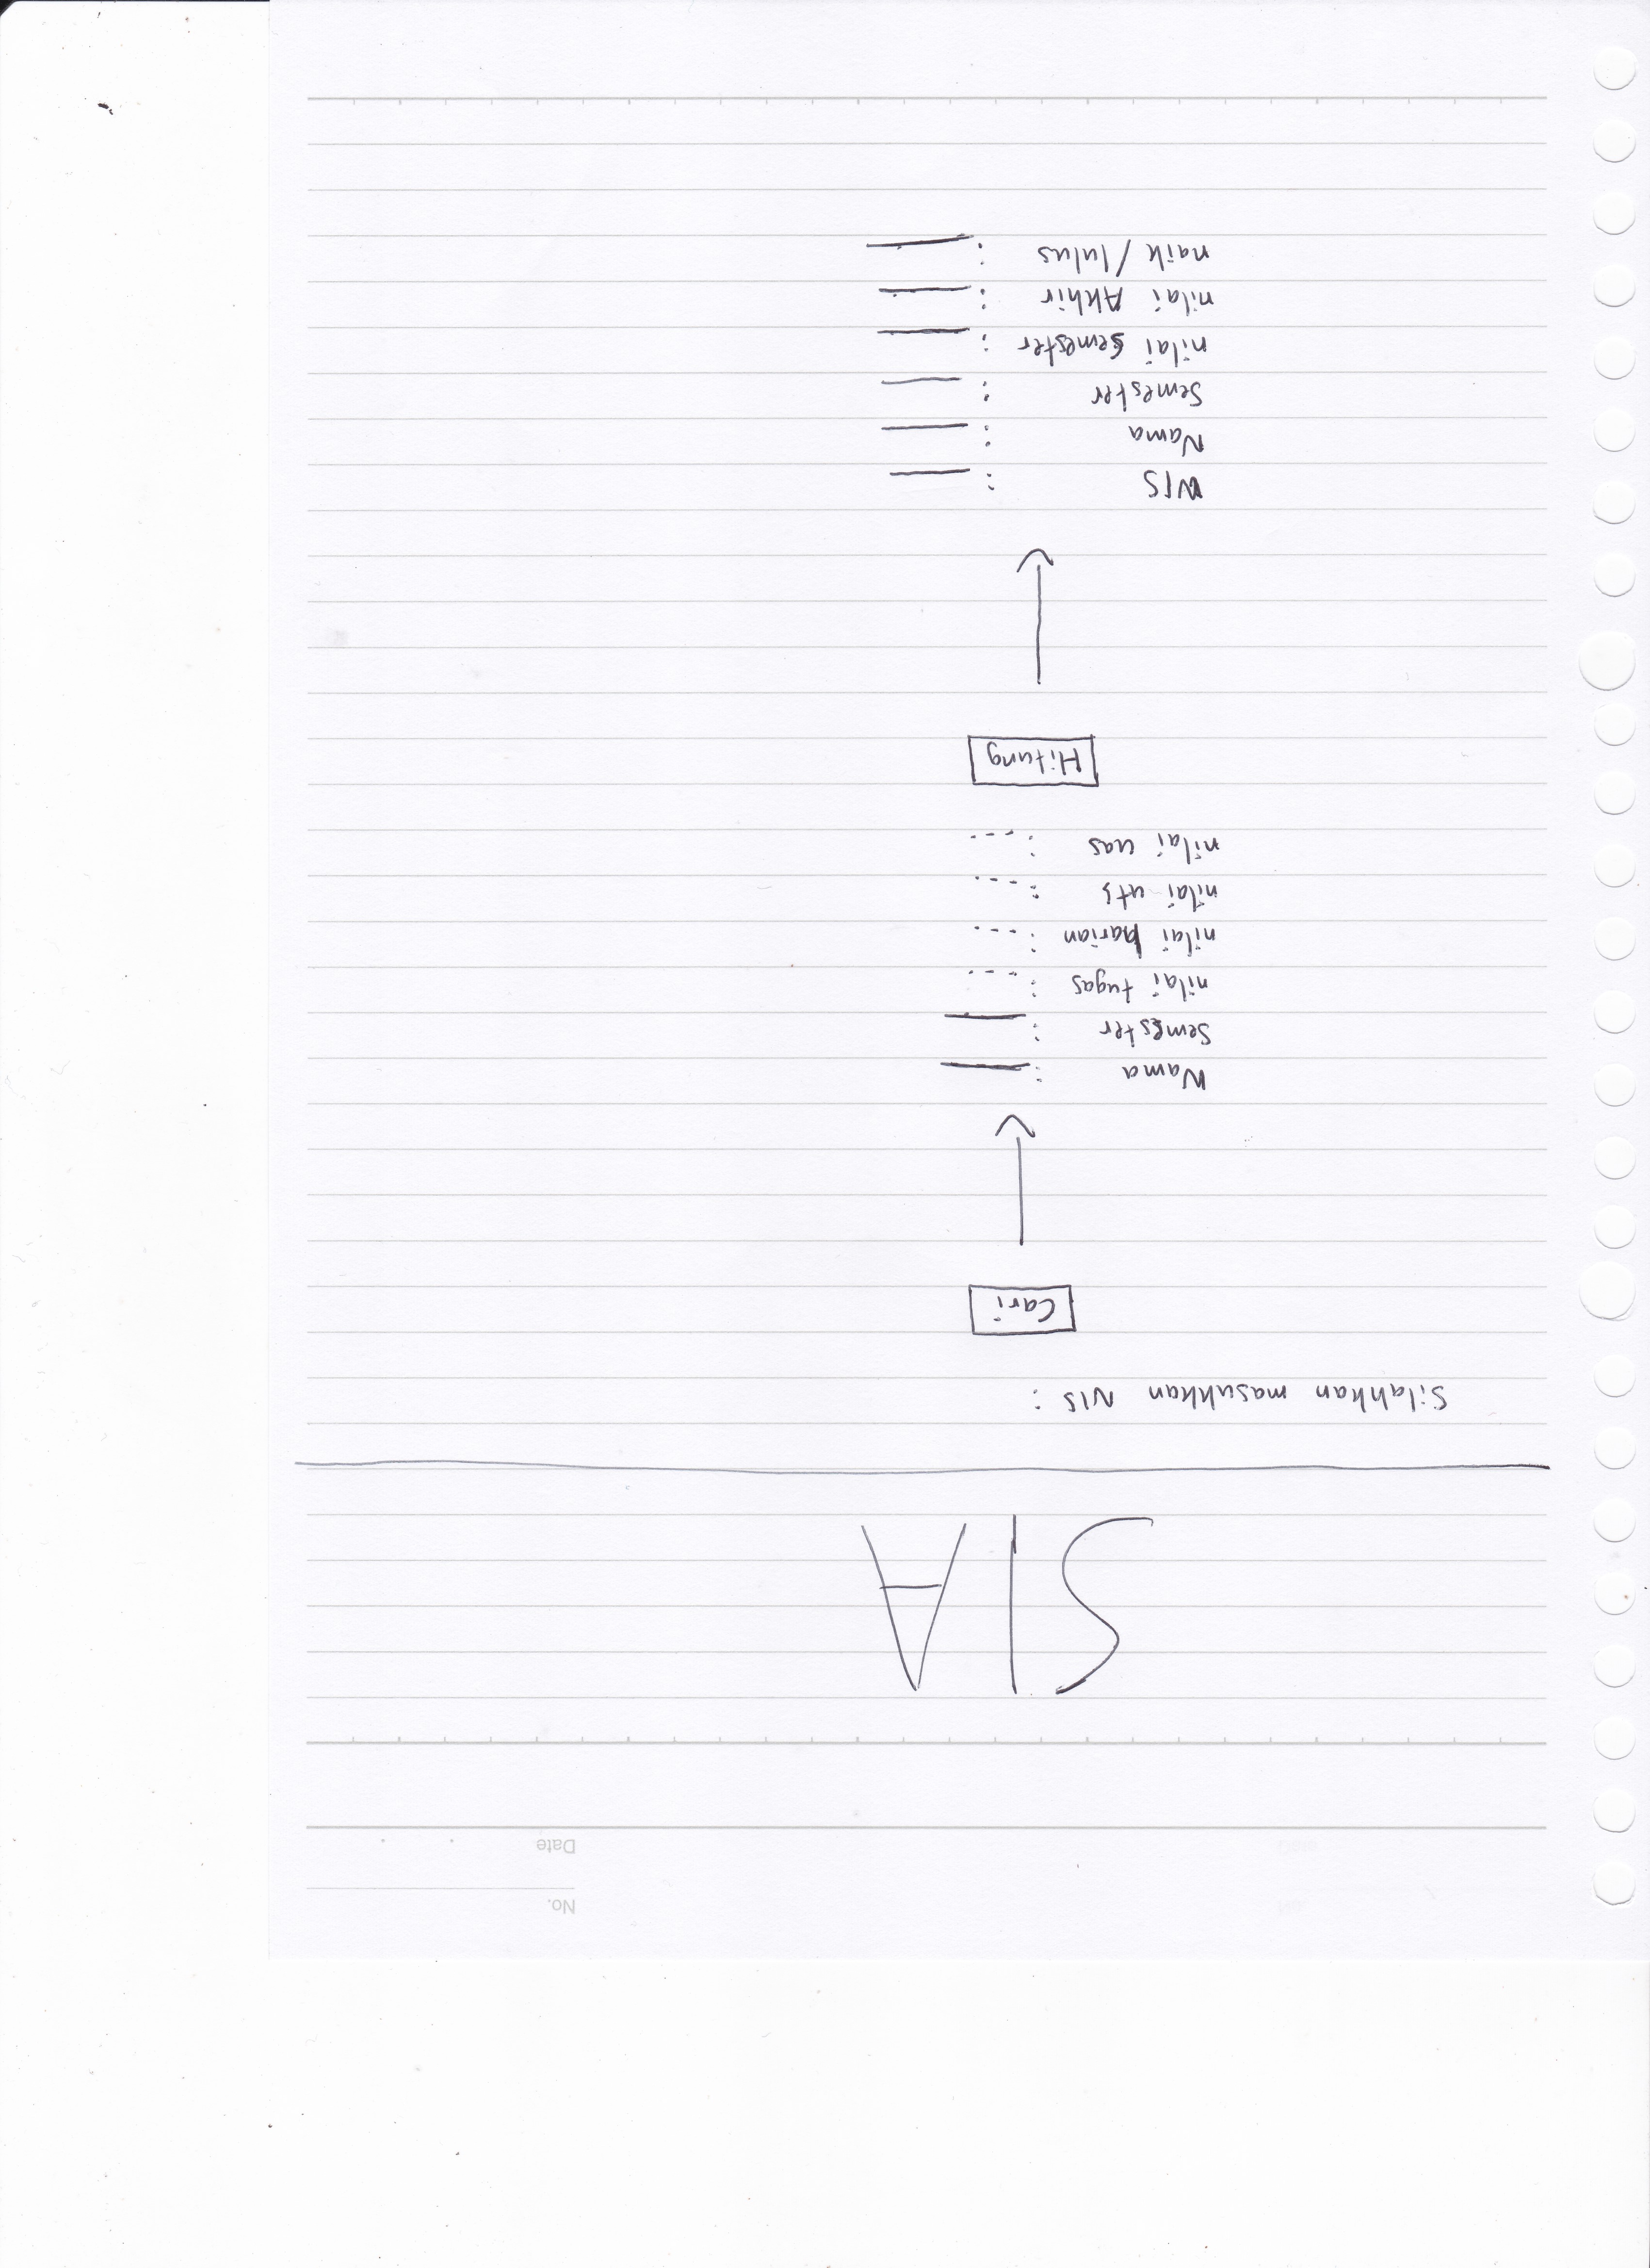 No.
Date . .
SIA
Silahkan masukkan NIS :
Cari
Nama :
Semester :
nilai tugas : ---
nilai harian : ---
nilai uts : ---
nilai uas : ---
Hitung
NIS :
Nama :
Semester :
nilai semester :
nilai Akhir :
naik / lulus :